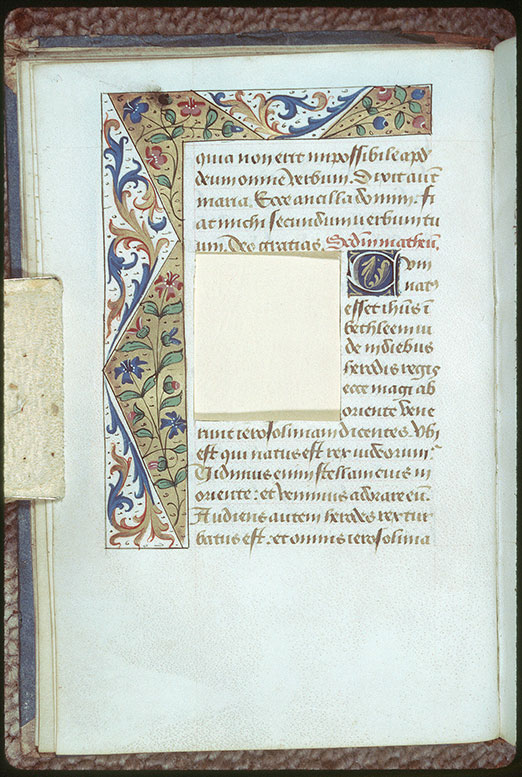 quia non erit impossibile apd
deum omne verbum. Dixit aut̄
maria. Ecce ancilla domini: fi
at michi secundum verbum tu
um. Deo gratias. Scd̄m matheū.
Cum
natꝰ
esset ihūs ī
bethleem iu
de in diebus
herodis regis
ecce magi ab
oriente vene
runt ierosolimam dicentes. Vbi
est qui natus est rex iudeorum:
Vidimus enim stellam eius in
oriente: et venimus adorare eū.
Audiens autem herodes rex tur
batus est: et omnis ierosolima